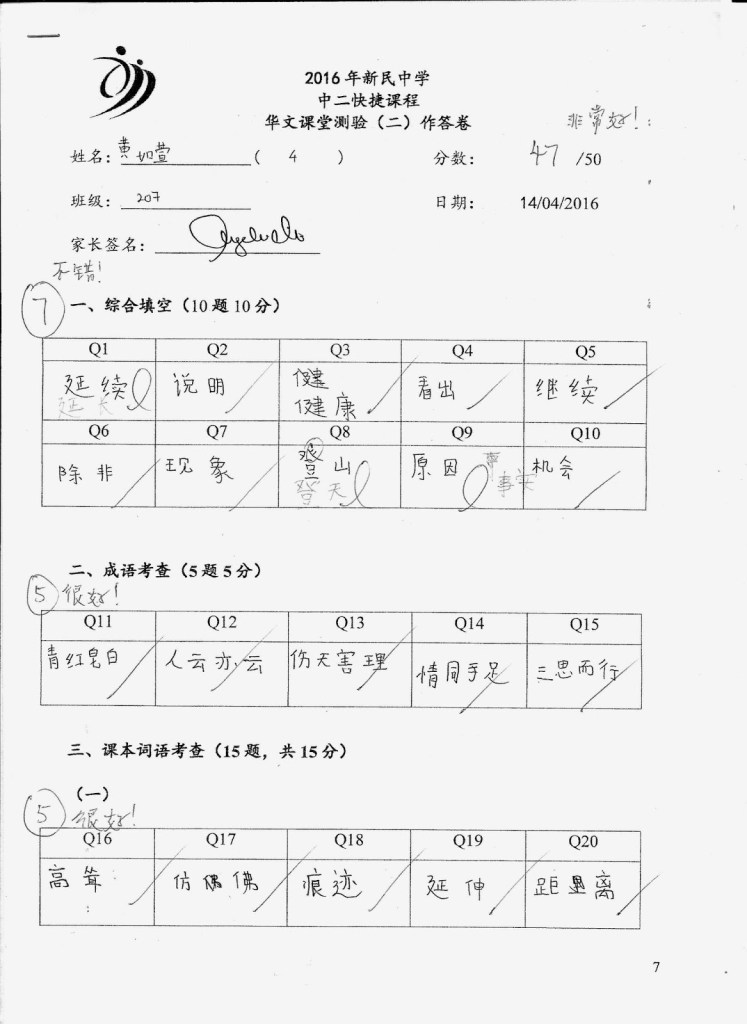 2016 年新民中学
中二快捷课程
华文课堂测验（二）作答卷
非常好！
姓名：黄如萱 （ 4 ） 分数： 47 /50
班级： 207 日期： 14/04/2016
家长签名：
不错！
7 一、综合填空（10 题 10 分）
Q1 Q2 Q3 Q4 Q5
延续 说明 健 健康 看出 继续
延长
Q6 Q7 Q8 Q9 Q10
除非 现象 登山 原因 事实 机会
登天
二、成语考查（5 题 5 分）
5 很好！
Q11 Q12 Q13 Q14 Q15
青红皂白 人云亦云 伤天害理 情同手足 三思而行
三、课本词语考查（15 题，共 15 分）
（一）
5 很好！
Q16 Q17 Q18 Q19 Q20
高耸 仿佛 痕迹 延伸 距离
7